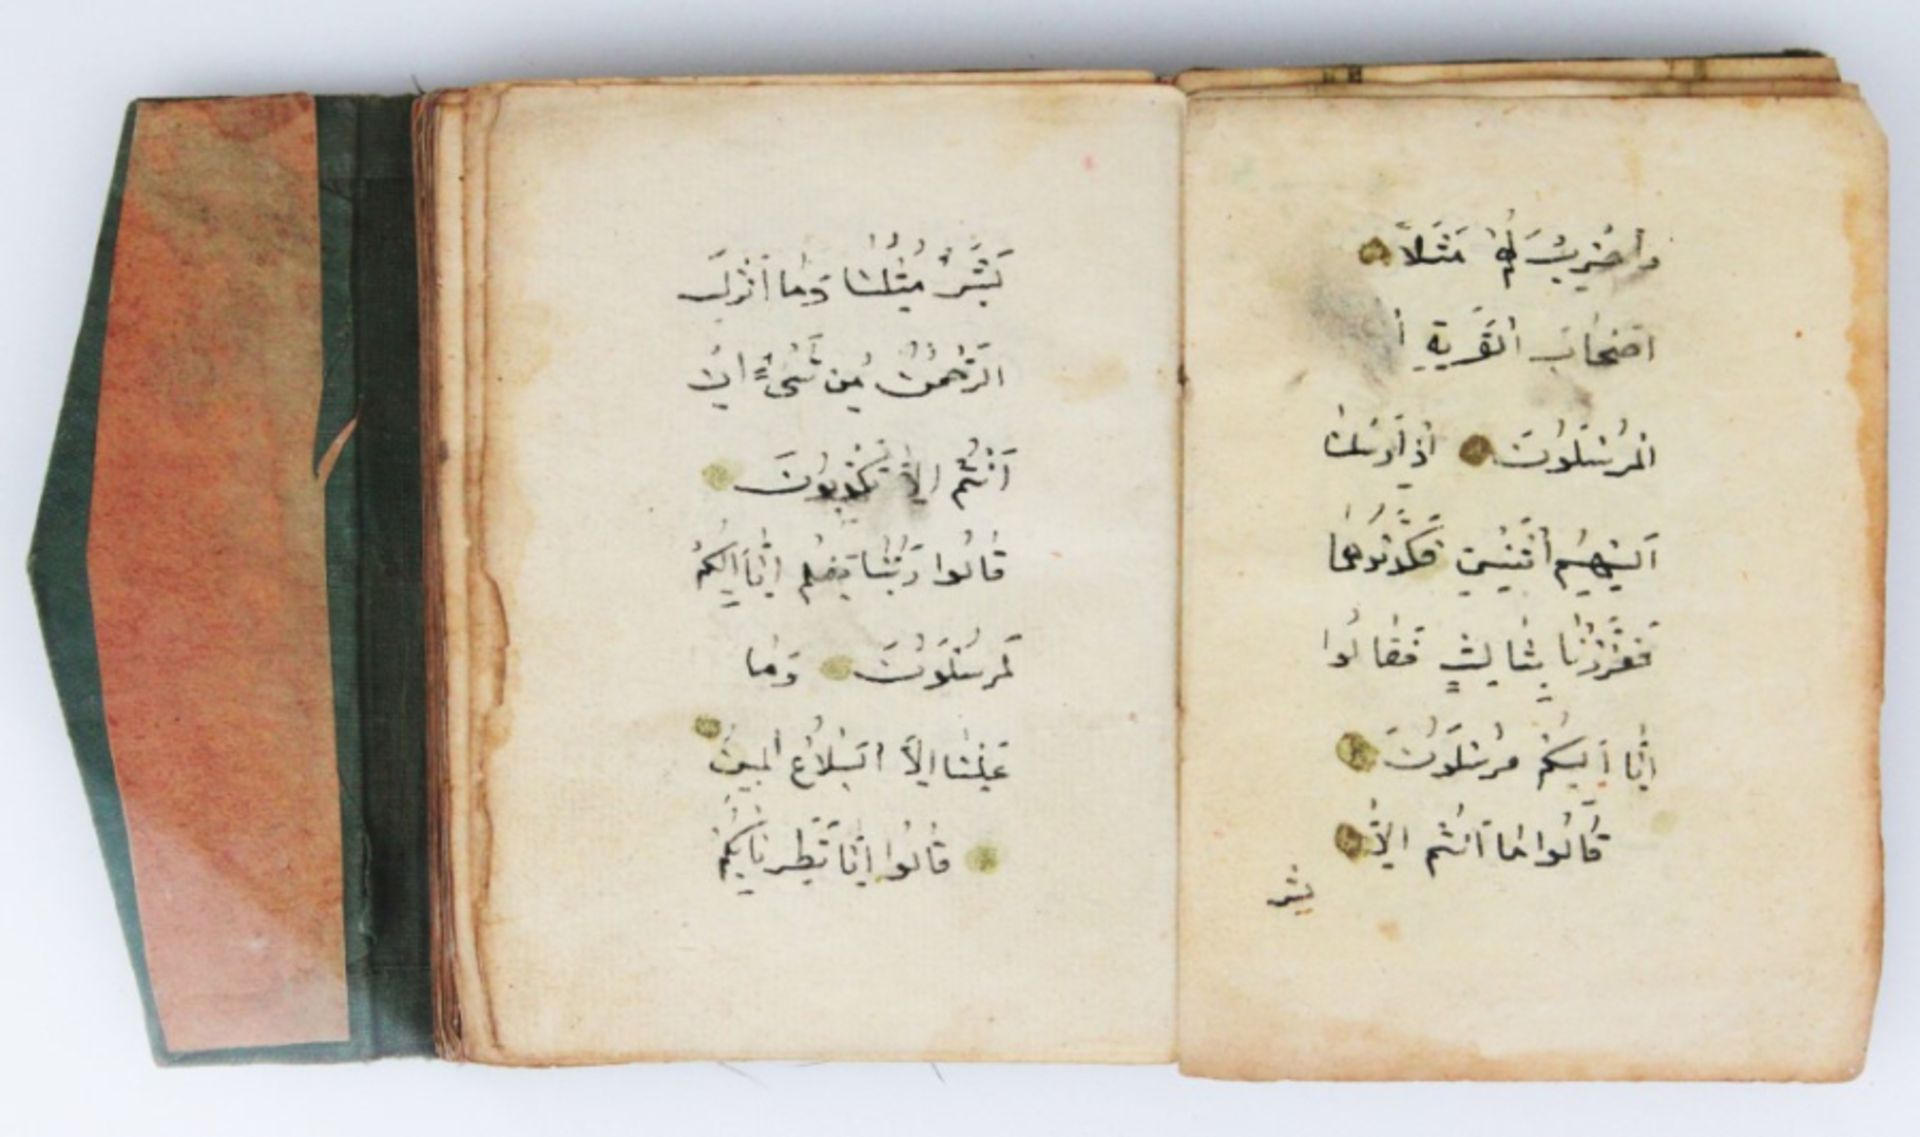 وَاضْرِبْ لَهُمْ مَثَلاً
اَصْحَابَ الْقَرْيَةِ
الْمُرْسَلُونَ اِذْ اَرْسَلْنَا
اِلَيْهِمُ اثْنَيْنِ فَكَذَّبُوهُمَا
فَعَزَّزْنَا بِثَالِثٍ فَقَالُوا
اِنَّا اِلَيْكُمْ مُرْسَلُونَ
قَالُوا مَا اَنْتُمْ اِلَّا
بشر
بَشَرٌ مِثْلُنَا وَمَا اَنْزَلَ
الرَّحْمٰنُ مِنْ شَيْءٍ اِنْ
اَنْتُمْ اِلَّا تَكْذِبُونَ
قَالُوا رَبُّنَا يَعْلَمُ اِنَّا اِلَيْكُمْ
لَمُرْسَلُونَ وَمَا
عَلَيْنَا اِلَّا الْبَلَاغُ الْمُبِينُ
قَالُوا اِنَّا تَطَيَّرْنَا بِكُمْ